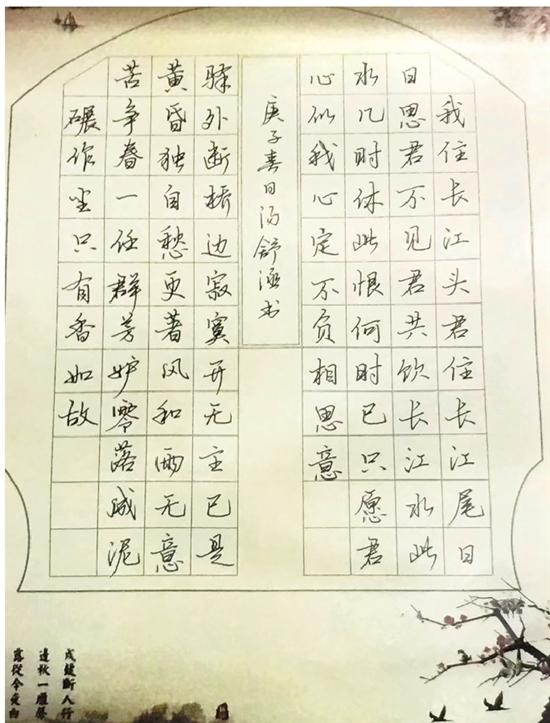 我住长江头君住长江尾日
日思君不见君共饮长江水此
水几时休此恨何时已只愿君
心似我心定不负相思意
庚子春日汤舒涵书
驿外断桥边寂寞开无主已是
黄昏独自愁更著风和雨无意
苦争春一任群芳妒零落成泥
碾作尘只有香如故
戍鼓斷人行
邊秋一雁聲
露從今夜白